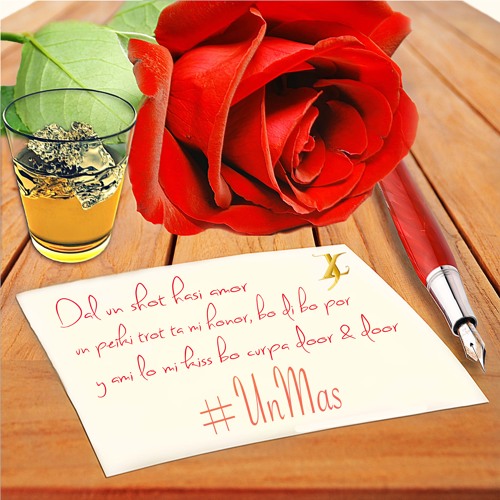 Dal un shot hasi amor
un peiki trot ta mi honor, bo di bo por
y ami lo mi kiss bo curpa door & door
#UnMas